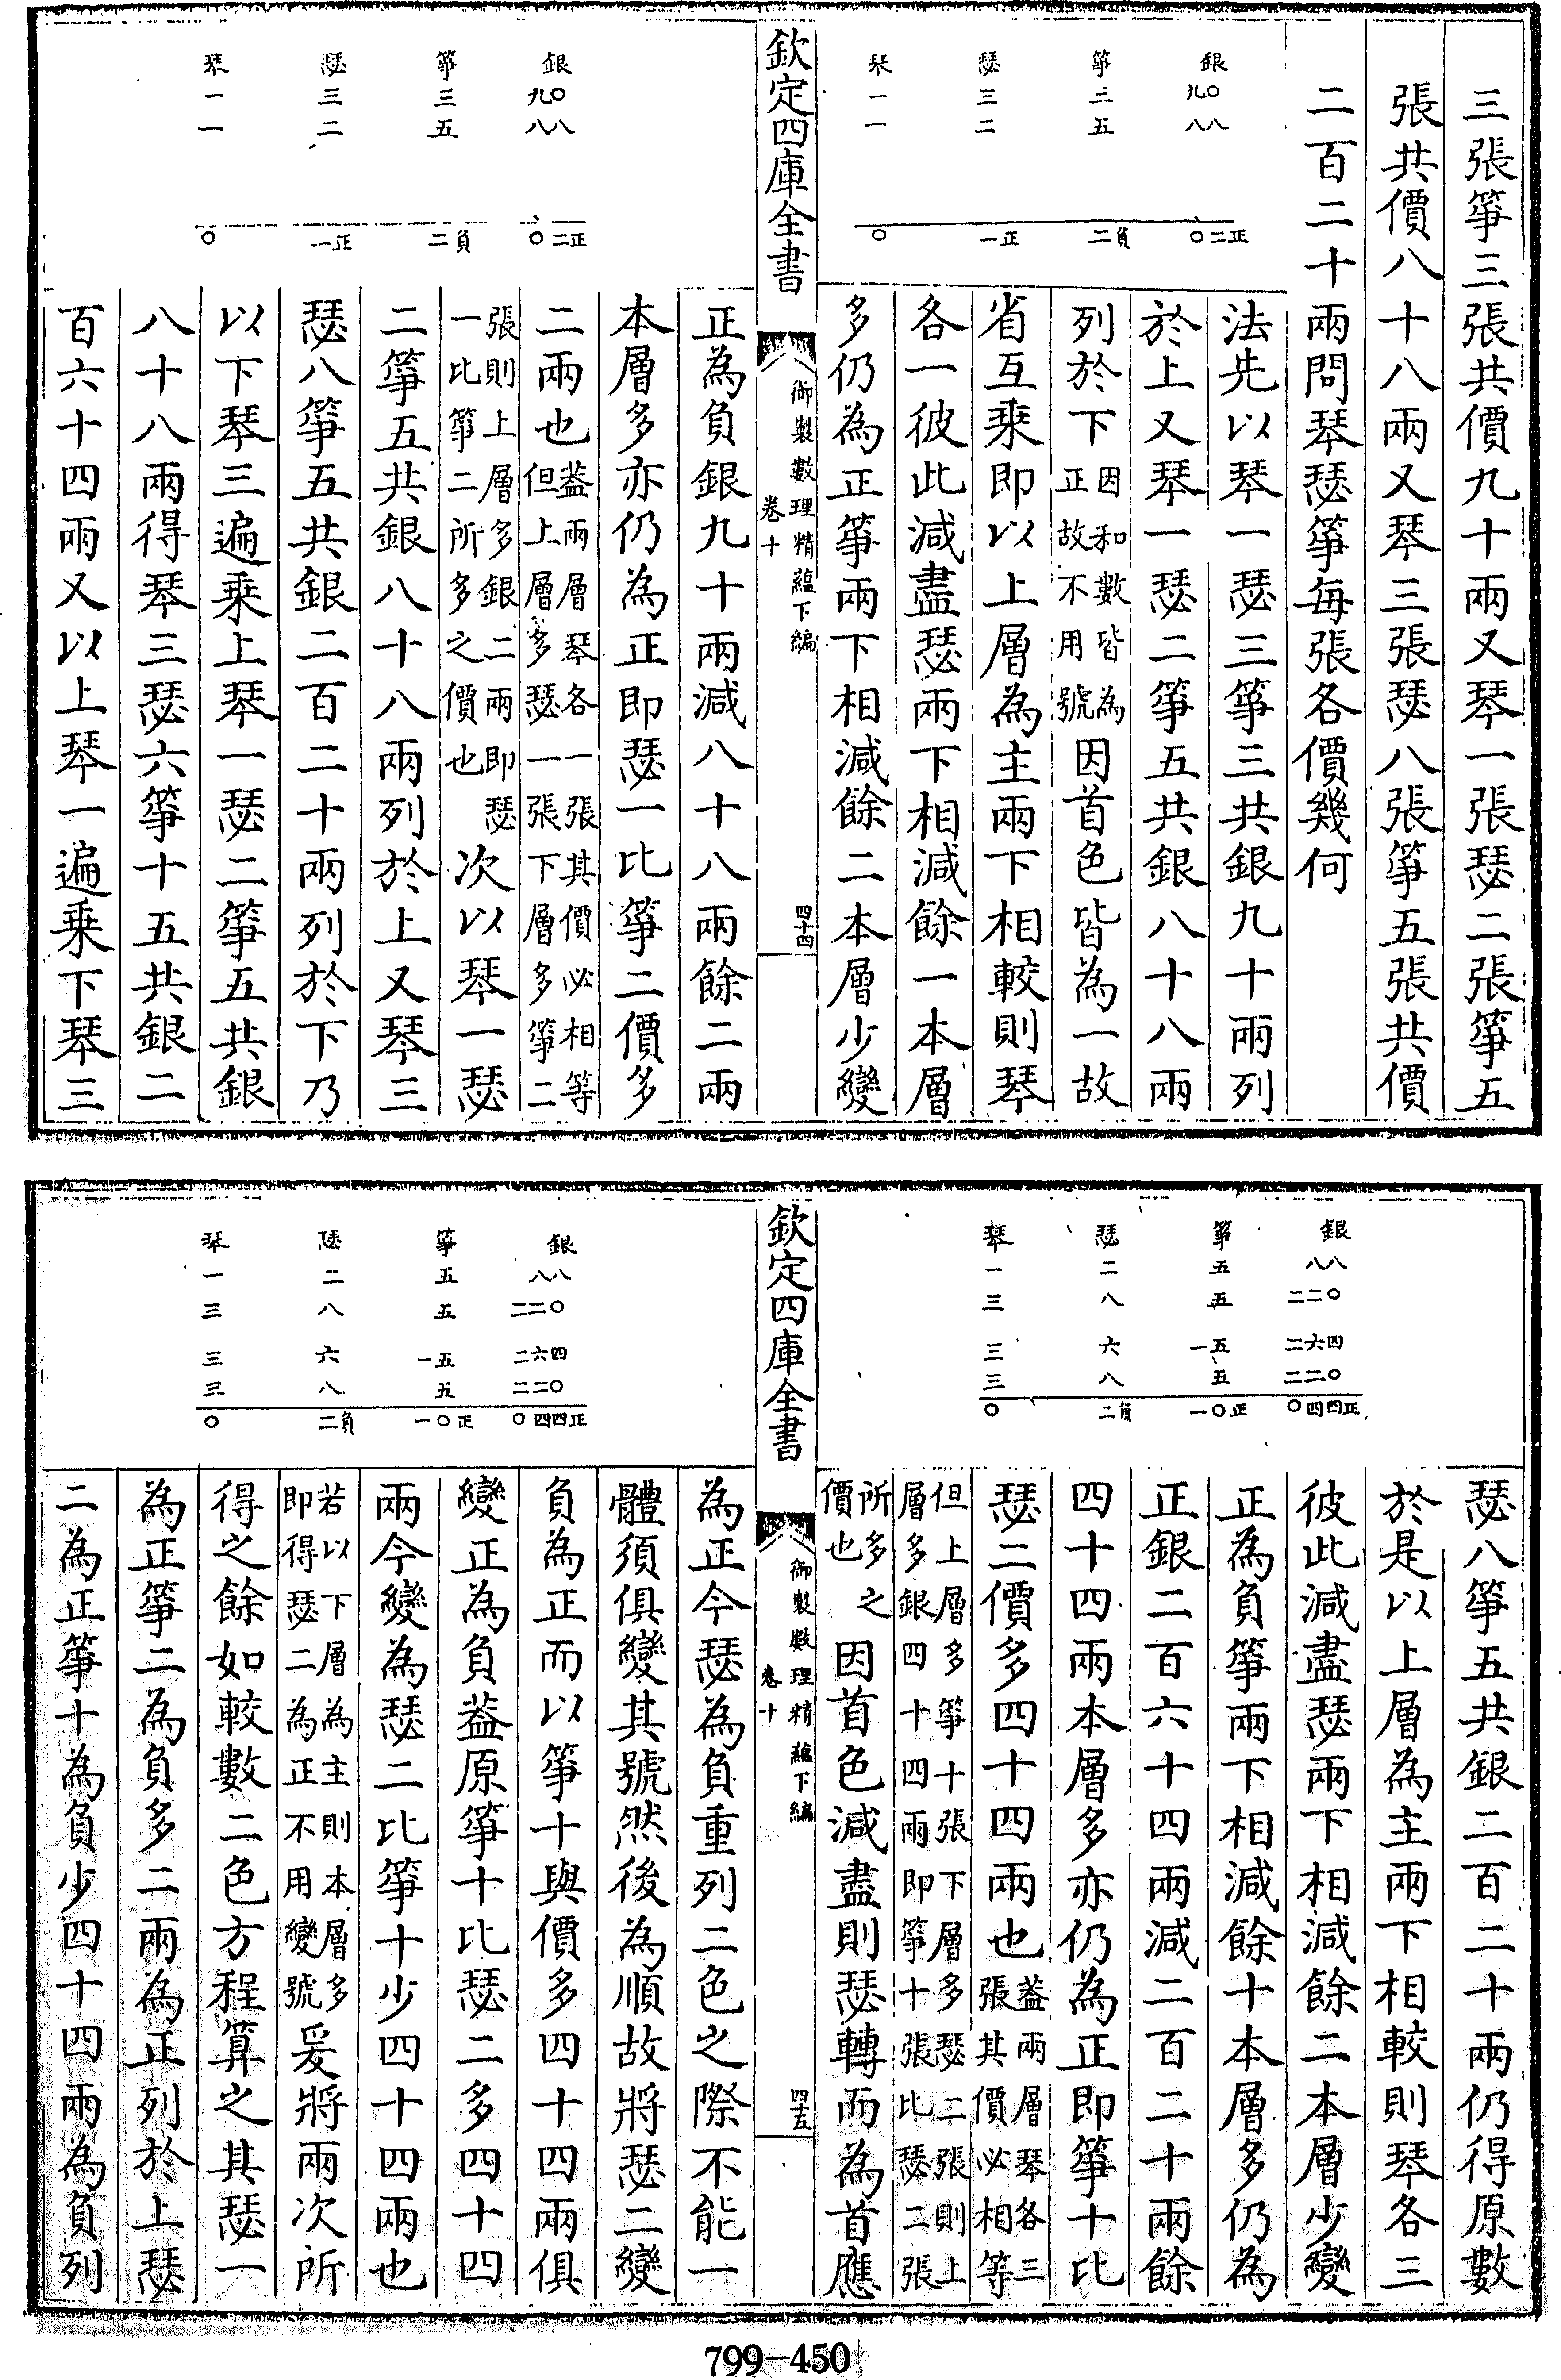 三張箏三張共價九十兩又琴一張瑟二張箏五
張共價八十八兩又琴三張瑟八張箏五張共價
二百二十兩問琴瑟箏每張各價幾何
銀 箏 瑟 琴
九〇 三 三 一
八八 五 二 一
正二〇 負二 正一 〇
法先以琴一瑟三箏三共銀九十兩列
於上又琴一瑟二箏五共銀八十八兩
列於下因和數皆為正故不用號因首色皆為一故
省互乘即以上層為主兩下相較則琴
各一彼此減盡瑟兩下相減餘一本層
多仍為正箏兩下相減餘二本層少變
欽定四庫全書
御製數理精蘊下編
卷十
四十四
銀 箏 瑟 琴
九〇 三 三 一
八八 五 二 一
正二〇 負二 正一 〇
正為負銀九十兩減八十八兩餘二兩
本層多亦仍為正即瑟一比箏二價多
二兩也葢兩層琴各一張其價必相等但上層多瑟一張下層多箏二
張則上層多銀二兩即瑟一比箏二所多之價也次以琴一瑟
二箏五共銀八十八兩列於上又琴三
瑟八箏五共銀二百二十兩列於下乃
以下琴三遍乘上琴一瑟二箏五共銀
八十八兩得琴三瑟六箏十五共銀二
百六十四兩又以上琴一遍乘下琴三
銀 箏 瑟 琴
八八 五 二 一
二二〇 五 八 三
二六四 一五 六 三
二二〇 五 八 三
正四四〇 正〇一 負二 〇
瑟八箏五共銀二百二十兩仍得原數
於是以上層為主兩下相較則琴各三
彼此減盡瑟兩下相減餘二本層少變
正為負箏兩下相減餘十本層多仍為
正銀二百六十四兩減二百二十兩餘
四十四兩本層多亦仍為正即箏十比
瑟二價多四十四兩也葢兩層琴各三張其價必相等
但上層多箏十張下層多瑟二張則上層多銀四十四兩即箏十張比瑟二張
所多之價也因首色減盡則瑟轉而為首應
欽定四庫全書
御製數理精蘊下編
卷十
四十五
銀 箏 瑟 琴
八八 五 二 一
二二〇 五 八 三
二六四 一五 六 三
二二〇 五 八 三
正四四〇 正〇一 負二 〇
為正今瑟為負重列二色之際不能一
體須俱變其號然後為順故將瑟二變
負為正而以箏十與價多四十四兩俱
變正為負葢原箏十比瑟二多四十四
兩今變為瑟二比箏十少四十四兩也
若以下層為主則本層多即得瑟二為正不用變號爰將兩次所
得之餘如較數二色方程算之其瑟一
為正箏二為負多二兩為正列於上瑟
二為正箏十為負少四十四兩為負列
799-450